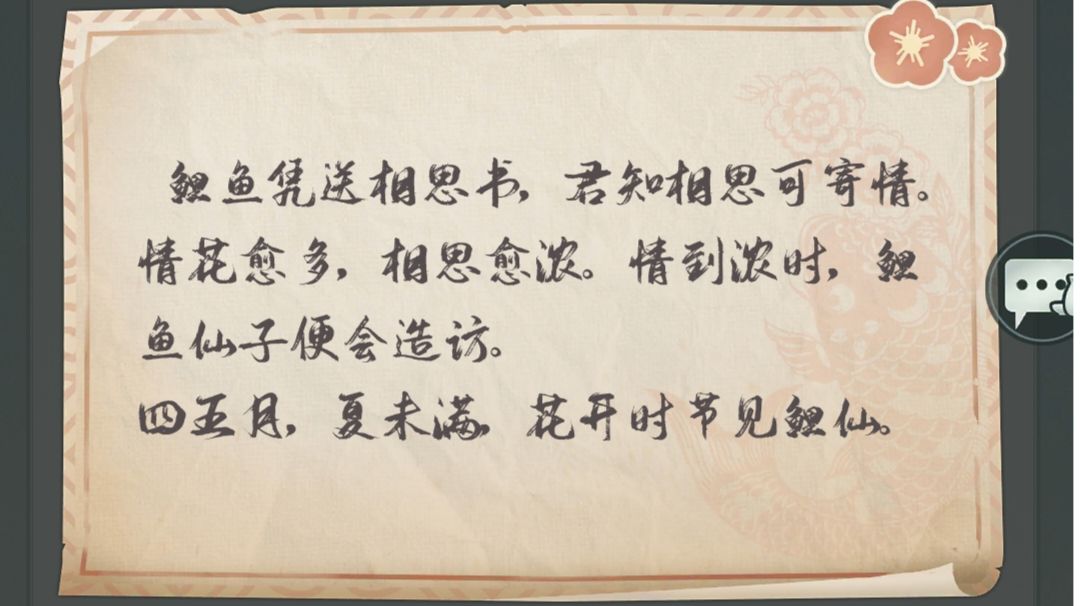 鲤鱼凭送相思书，君知相思可寄情。
情花愈多，相思愈浓。情到浓时，鲤
鱼仙子便会造访。
四五月，夏未满，花开时节见鲤仙。